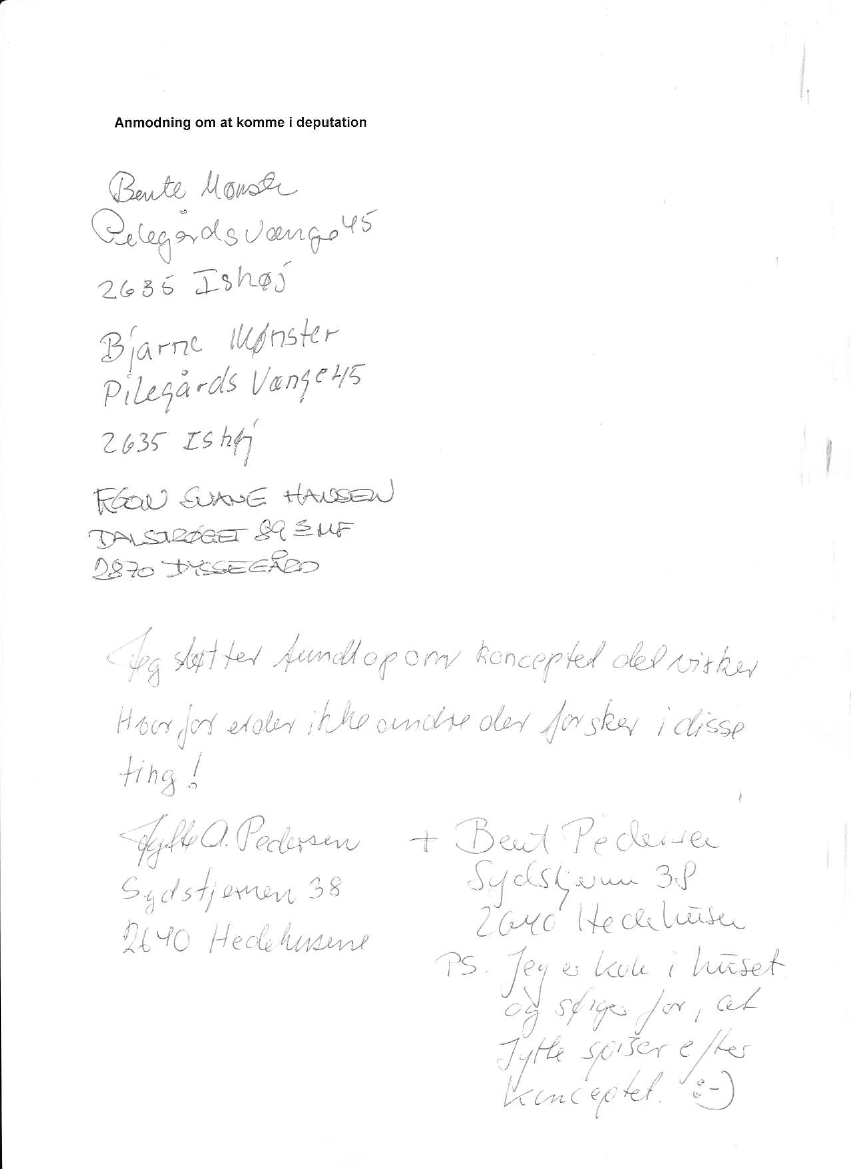 Anmodning om at komme i deputation
Bente Mønster
Pilegårds Vænge 45
2635 Ishøj
Bjarne Mønster
Pilegårds Vænge 45
2635 Ishøj
EGON SVANE HANSEN
DALSTRØGET 89 3 MF
2870 DYSSEGÅRD
Jeg støtter fundtop om konceptet det virker
Hvorfor er der ikke andre der forsker i disse
ting!
Jytte A. Pedersen
Sydstjernen 38
2640 Hedehusene
+ Bent Pedersen
Sydstjernen 38
2640 Hedehusene
PS. Jeg er kok i huset
og sørger for, at
Jytte spiser efter
konceptet. :-)